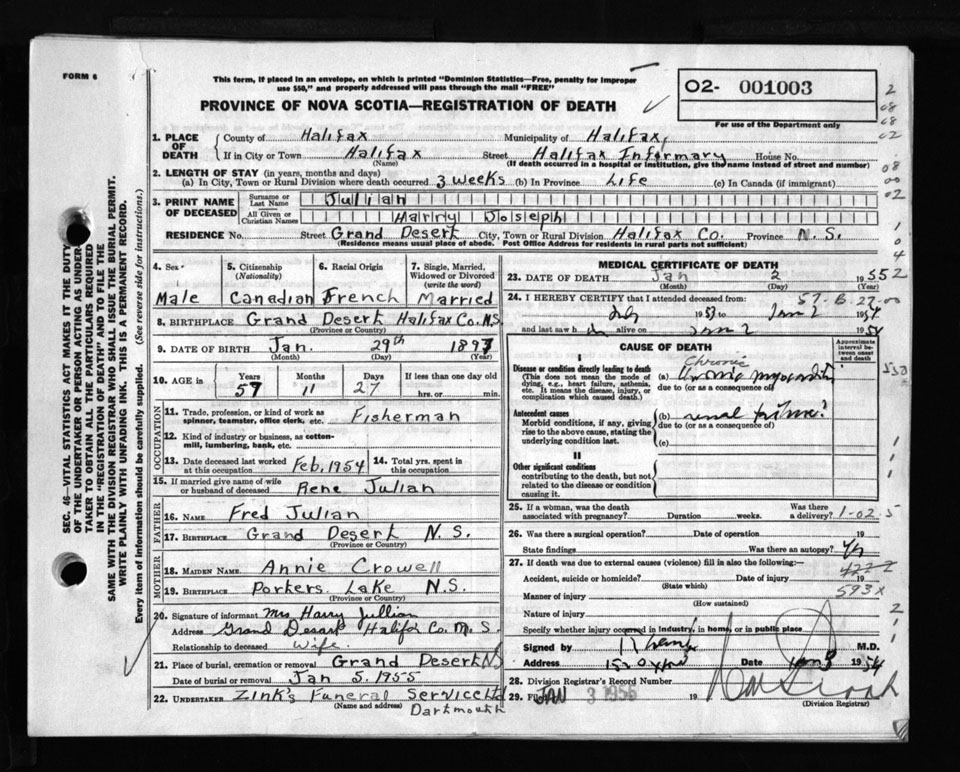 FORM 6
This form, if placed in an envelope, on which is printed "Dominion Statistics—Free, penalty for improper
use $50," and properly addressed will pass through the mail "FREE"
PROVINCE OF NOVA SCOTIA—REGISTRATION OF DEATH
O2- 001003
For use of the Department only
1. PLACE OF DEATH
County of Halifax Municipality of Halifax,
If in City or Town Halifax Street Halifax Infirmary House No.
(Name) (If death occurred in a hospital or institution, give the name instead of street and number)
2. LENGTH OF STAY (in years, months and days)
(a) In City, Town or Rural Division where death occurred 3 weeks (b) In Province Life (c) In Canada (if immigrant)
3. PRINT NAME OF DECEASED
Surname or Last Name Julian
All Given or Christian Names Harry Joseph
RESIDENCE No. Street Grand Desert City, Town or Rural Division Halifax Co. Province N.S.
(Residence means usual place of abode. Post Office Address for residents in rural parts not sufficient)
4. Sex Male
5. Citizenship (Nationality) Canadian
6. Racial Origin French
7. Single, Married, Widowed or Divorced (write the word) Married
8. BIRTHPLACE Grand Desert Halifax Co. N.S.
(Province or Country)
9. DATE OF BIRTH Jan. 29th 1897
(Month) (Day) (Year)
10. AGE in Years 57 Months 11 Days 27 If less than one day hrs. or min.
OCCUPATION
11. Trade, profession, or kind of work as spinner, teamster, office clerk, etc. Fisherman
12. Kind of industry or business, as cotton-mill, lumbering, bank, etc.
13. Date deceased last worked at this occupation Feb, 1954
14. Total yrs. spent in this occupation
15. If married give name of wife or husband of deceased Rene Julian
FATHER
16. NAME Fred Julian
17. BIRTHPLACE Grand Desert N.S.
(Province or Country)
MOTHER
18. MAIDEN NAME Annie Crowell
19. BIRTHPLACE Porkers Lake N.S.
(Province or Country)
20. Signature of informant Mrs Harry Jullian
Address Grand Desart Halifax Co. N.S.
Relationship to deceased Wife.
21. Place of burial, cremation or removal Grand Desert N.S
Date of burial or removal Jan 5. 1955
22. UNDERTAKER Zink's Funeral Service Ltd
(Name and address) Dartmouth
MEDICAL CERTIFICATE OF DEATH
23. DATE OF DEATH Jan 2 1955
(Month) (Day)
24. I HEREBY CERTIFY that I attended deceased from:
and last saw h alive on Jan 2 1954
CAUSE OF DEATH
Approximate interval between onset and death
I
Disease or condition directly leading to death
This does not mean the mode of dying, e.g., heart failure, asthenia, etc. It means the disease, injury, or complication which caused death.
Chronic
(a)
due to (or as a consequence of)
Antecedent causes
Morbid conditions, if any, giving rise to the above cause, stating the underlying condition last.
(b) renal
due to (or as a consequence of)
(c)
II
Other significant conditions
contributing to the death, but not related to the disease or condition causing it.
25. If a woman, was the death associated with pregnancy? Duration weeks. Was there a delivery?
1-02 5
26. Was there a surgical operation? Date of operation 19
State findings Was there an autopsy?
27. If death was due to external causes (violence) fill in also the following:
Accident, suicide or homicide? Date of injury 19
(State which)
593X
Manner of injury
(How sustained)
Nature of injury
Specify whether injury occurred in industry, in home, or in public place
Signed by M.D.
Address Date Jan 3 1954
28. Division Registrar's Record Number
29. Filed JAN 3 1955 19
(Division Registrar)
SEC. 46—VITAL STATISTICS ACT MAKES IT THE DUTY
OF THE UNDERTAKER OR PERSON ACTING AS UNDER-
TAKER TO OBTAIN ALL THE PARTICULARS REQUIRED
IN THE "REGISTRATION OF DEATH" AND TO FILE THE
SAME WITH THE DIVISION REGISTRAR WHO SHALL ISSUE THE BURIAL PERMIT.
WRITE PLAINLY WITH UNFADING INK. THIS IS A PERMANENT RECORD.
Every item of information should be carefully supplied. (See reverse side for instructions.)